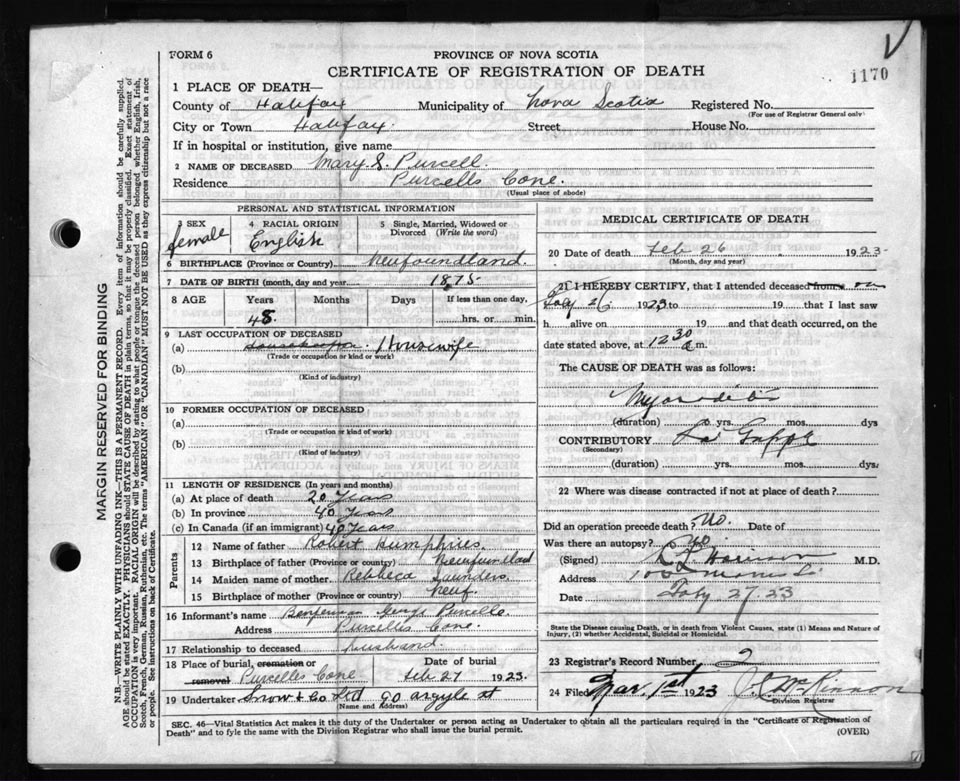 FORM 6
PROVINCE OF NOVA SCOTIA
CERTIFICATE OF REGISTRATION OF DEATH
1170
1 PLACE OF DEATH—
County of Halifax Municipality of Nova Scotia Registered No.
(For use of Registrar General only)
City or Town Halifax. Street House No.
If in hospital or institution, give name
2 NAME OF DECEASED Mary. S. Purcell.
Residence Purcells Cove.
(Usual place of abode)
PERSONAL AND STATISTICAL INFORMATION
3 SEX female
4 RACIAL ORIGIN English
5 Single, Married, Widowed or Divorced (Write the word)
6 BIRTHPLACE (Province or Country) Newfoundland.
7 DATE OF BIRTH (month, day and year) 1875
8 AGE Years Months Days If less than one day,
48. hrs. or min.
9 LAST OCCUPATION OF DECEASED
(a) Housekeeper Housewife
(Trade or occupation or kind of work)
(b)
(Kind of industry)
10 FORMER OCCUPATION OF DECEASED
(a)
(Trade or occupation or kind of work)
(b)
(Kind of industry)
11 LENGTH OF RESIDENCE (In years and months)
(a) At place of death 20 Years
(b) In province 40 Years
(c) In Canada (if an immigrant) 40 Years
Parents
12 Name of father Robert Humphries
13 Birthplace of father (Province or country) Newfundland
14 Maiden name of mother Rebbeca Saunders
15 Birthplace of mother (Province or country) Newf.
16 Informant's name Benjerman George Purcells.
Address Purcells Cove.
17 Relationship to deceased husband
18 Place of burial, cremation or removal Purcelles Cove Date of burial Feb 27 1923.
19 Undertaker Snow & Co Ltd 90 Argyle st
Name and Address)
MEDICAL CERTIFICATE OF DEATH
20 Date of death Feb 26 1923
(Month, day and year)
21 I HEREBY CERTIFY, that I attended deceased from on
Feby 26 1923 to 19 that I last saw
h alive on 19 and that death occurred, on
date stated above, at 12 30 a m.
The CAUSE OF DEATH was as follows:
Myocarditis
(duration) yrs. mos. dys
CONTRIBUTORY La Grippe
(Secondary)
(duration) yrs. mos. dys.
22 Where was disease contracted if not at place of death?
Did an operation precede death? No. Date of
Was there an autopsy? No
(Signed) M.D.
Address
Date Feby 27. 23
State the Disease causing Death, or in death from Violent Causes, state (1) Means and Nature of
Injury, (2) whether Accidental, Suicidal or Homicidal.
23 Registrar's Record Number 2
24 Filed Mar 1st 1923 McKinnon
Division Registrar
SEC. 46—Vital Statistics Act makes it the duty of the Undertaker or person acting as Undertaker to obtain all the particulars required in the "Certificate of Registration of
Death" and to fyle the same with the Division Registrar who shall issue the burial permit.
(OVER)
MARGIN RESERVED FOR BINDING
N.B.—WRITE PLAINLY WITH UNFADING INK—THIS IS A PERMANENT RECORD. Every item of information should be carefully supplied.
AGE should be stated EXACTLY. PHYSICIANS should STATE CAUSE OF DEATH in plain terms, so that it may be properly classified. Exact statement of
OCCUPATION is very important. RACIAL ORIGIN will be described by stating to what people or tongue the deceased person belonged whether English, Irish,
Scotch, French, German, Russian, Ruthenian, etc. The terms "AMERICAN" OR "CANADIAN" MUST NOT BE USED as they express citizenship but not a race
or people. See instructions on back of Certificate.